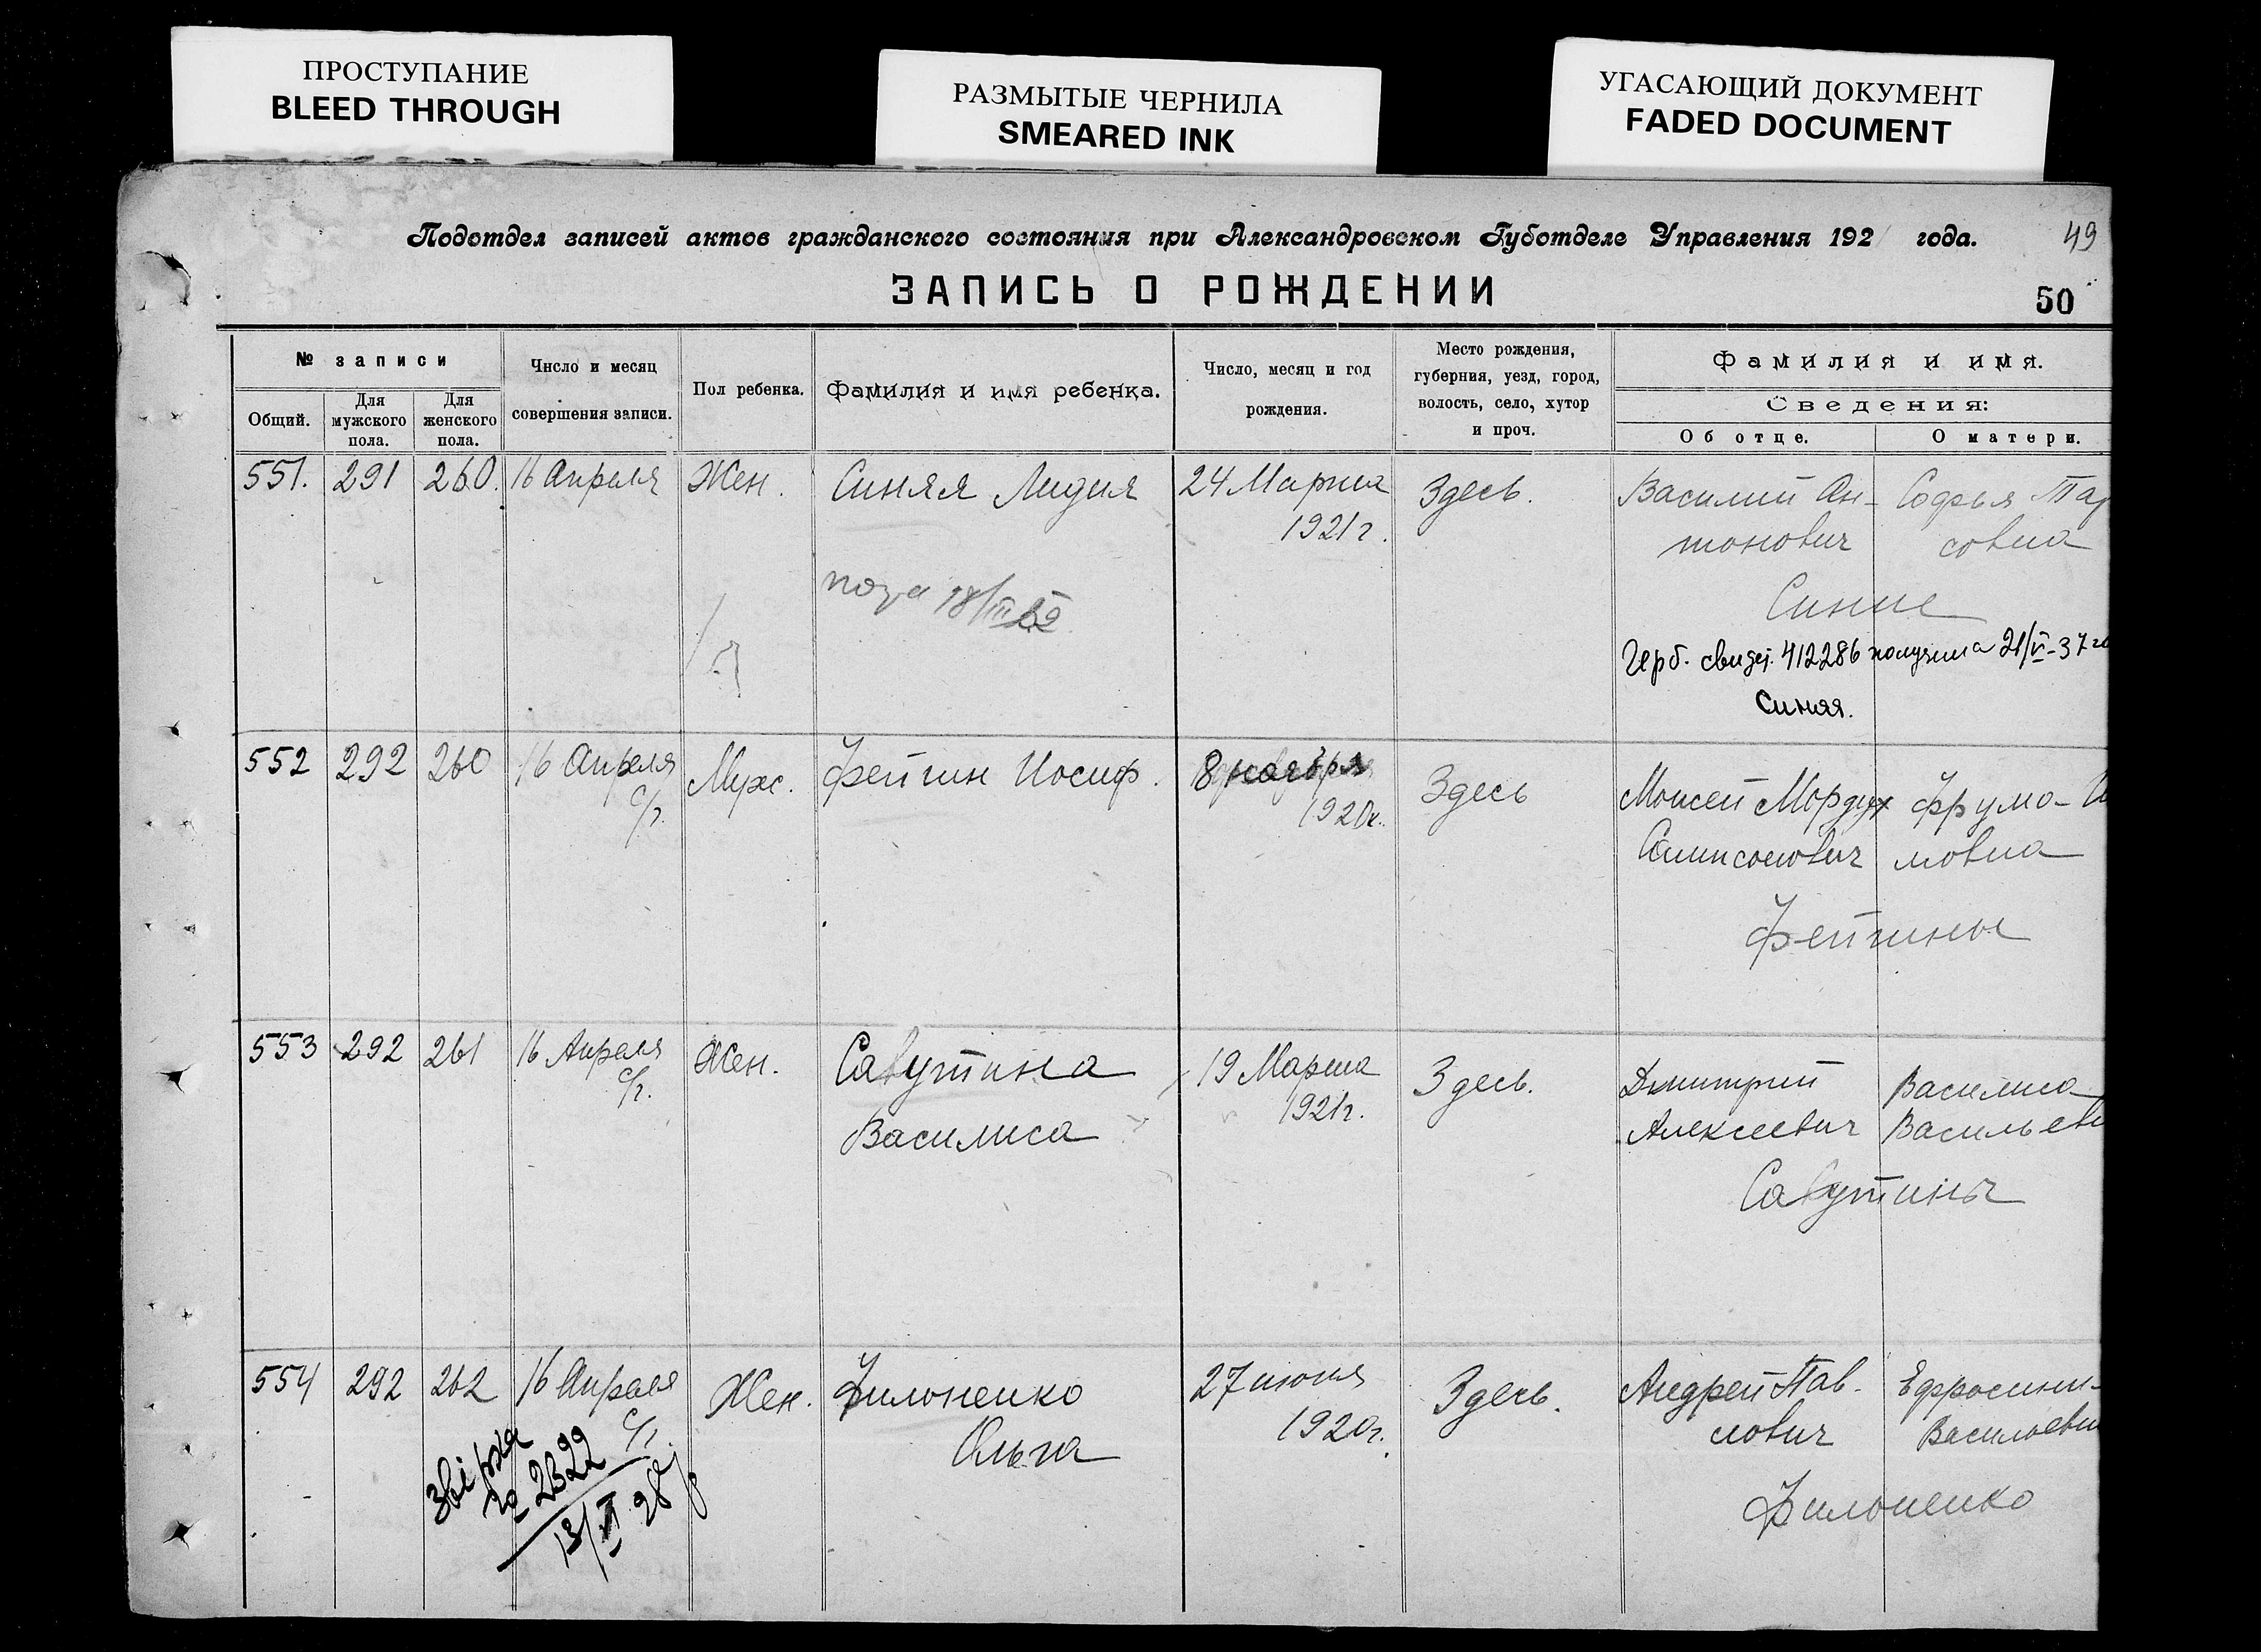 ПРОСТУПАНИЕ
BLEED THROUGH
РАЗМЫТЫЕ ЧЕРНИЛА
SMEARED INK
УГАСАЮЩИЙ ДОКУМЕНТ
FADED DOCUMENT
Подотдел записей актов гражданского состояния при Александровском Губотделе Управления 192 года.
49
ЗАПИСЬ О РОЖДЕНИИ
50
№ записи
Общий.
Для мужского пола.
Для женского пола.
Число и месяц
совершения записи.
Пол ребенка.
Фамилия и имя ребенка.
Число, месяц и год
рождения.
Место рождения,
губерния, уезд, город,
волость, село, хутор
и проч.
Фамилия и имя.
Сведения:
Об отце.
О матери.
551. 291 260. 16 Апреля Жен. Синяя Лидия 24 Марта Здесь. Василий Ан- Софья Тар
1921 г. тонович совна
Синие
18/III 52
Герб. свидет. 412286 получила 21/VI-37 г
Синяя.
552 292 260 16 Апреля Муж. Фейгин Иосиф. 8 ноября Здесь Моисей Мордух Фрума-
с/г. 1920г. Самисонович мовна
Фейгины
553 292 261 16 Апреля Жен. Савутина 19 Марта Здесь. Дмитрий Василиса
с/г. Василиса 1921г. Алексеевич Васильев
Савутины
554 292 262 16 Апреля Жен. Филоненко 27 июня Здесь. Андрей Пав- Ефросини-
с/г. Ольга 1920г. лович Васильевн
Филоненко
звірка
№ 2322
13/VI 28 р